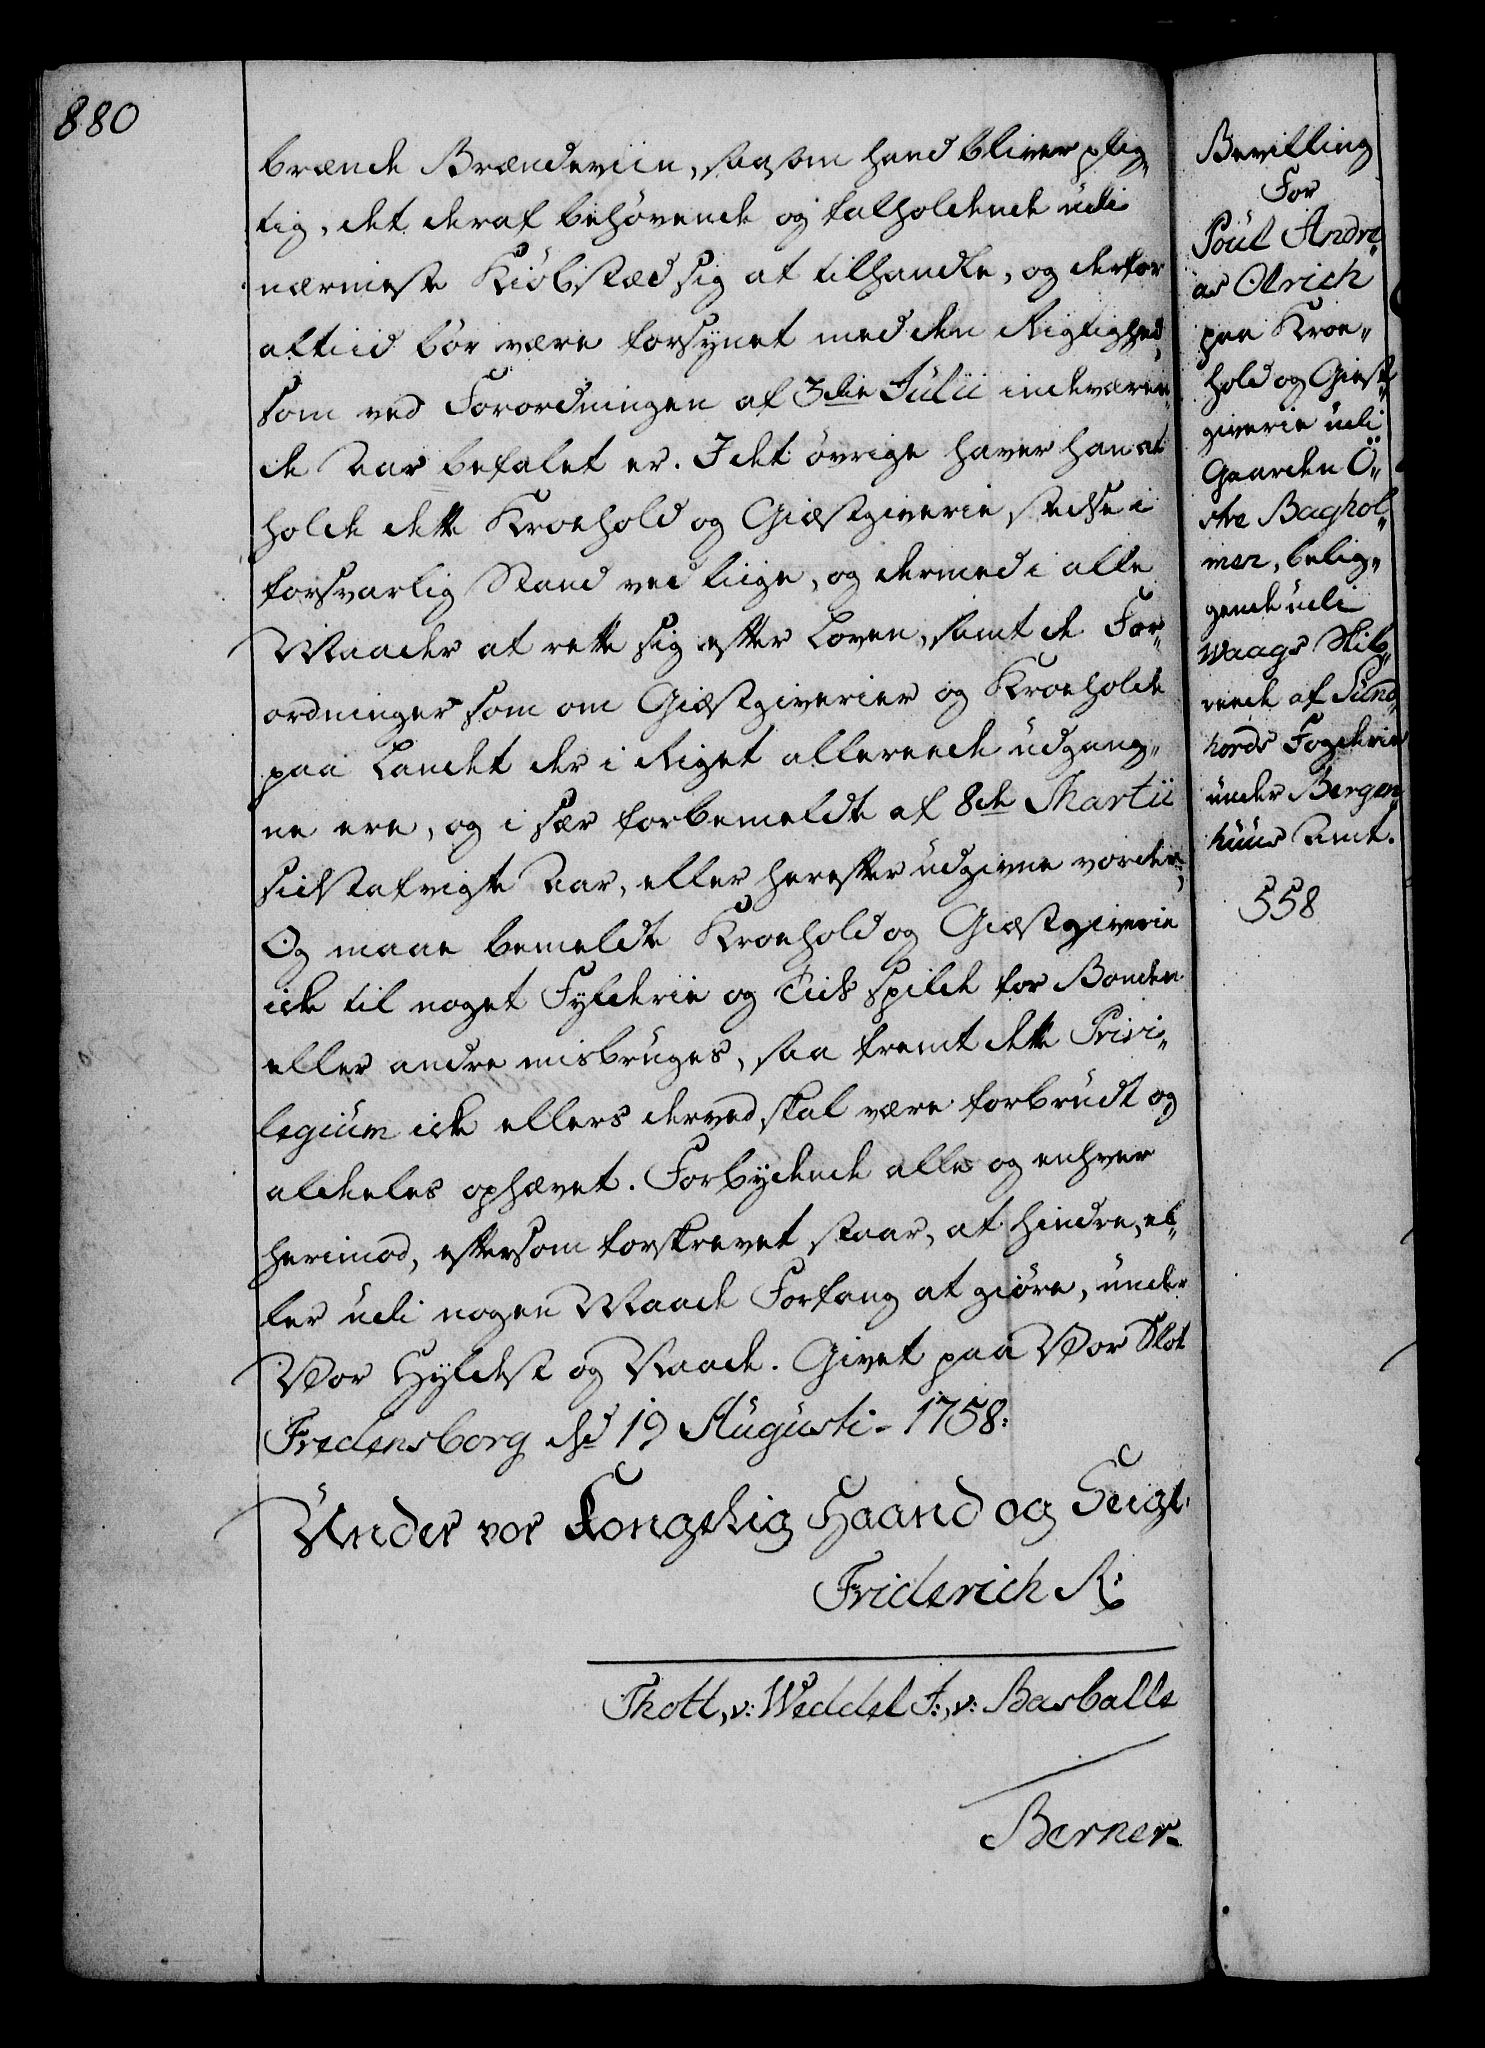 880
brænde Brændeviin, saasom hand bliver plig„
tig, det deraf behøvende og falholdende udi
nærmeste Kiøbstæd sig at tilhandle, og derfor
altiid bør være forsynet med den Rigtighed,
som ved Forordningen af 3die Julii indeværen„
de Aar befalet er. I det øvrige haver han at
holde dette Kroehold og Giæstgiverie stedse i
forsvarlig Stand ved liige, og dermed i alle
Maader at rette sig efter Loven, samt de For„
ordninger som om Giæstgiverier og Kroeholde
paa Landet der i Riget allereede udgang„
ne ere, og i sær forbemeldte af 8de Martii
sidstafvigte Aar, eller herefter udgivne vorder;
Og maae bemeldte Kroehold og Giæstgiverie
icke til noget Fylderie og Tids spilde for Bonden
eller andre misbruges, saa fremt dette Privi„
legium icke ellers derved skal være forbrudt og
aldeles ophævet. Forbydende alle og enhver
herimod, eftersom forskrevet staar, at hindre, el„
ler udi nogen Maade Forfang at giøre, under
Vor Hyldest og Naade. Givet paa Vor Slot
Fredensborg dend 19 Augusti 1758.
Under vor Kongelig Haand og Seigl.
Friderich R:
Thott, v: Weddel F:, v: Basballe
Berner.
Bevilling
For
Poul Andre„
as Olrich
paa Kroe„
hold og Giest„
giverie udi
Gaarden Ö„
stre Baghol„
mer, belig„
gende udi
Waags Skib„
reede af Sund„
hords Fogderie
under Bergen„
huus Amt.
558